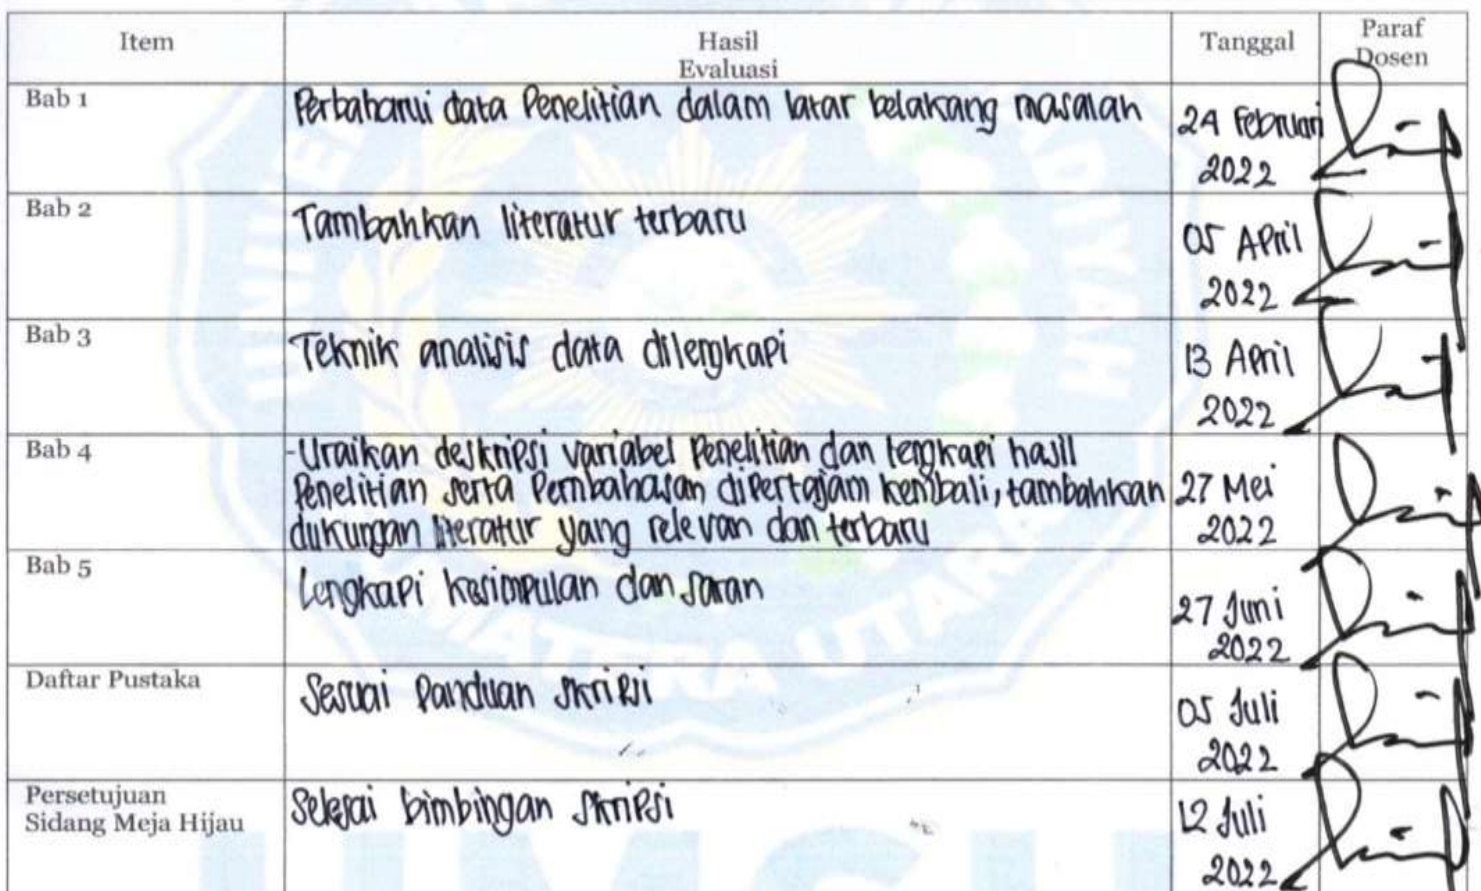 Item Hasil Evaluasi Tanggal Paraf Dosen
Bab 1 Perbaharui data Penelitian dalam latar belakang masalah 24 Februari 2022
Bab 2 Tambahkan literatur terbaru 05 April 2022
Bab 3 Teknik analisis data dilengkapi 13 April 2022
Bab 4 -Uraikan deskripsi variabel Penelitian dan lengkapi hasil
Penelitian serta Pembahasan dipertajam kembali, tambahkan 27 Mei
dukungan literatur yang relevan dan terbaru 2022
Bab 5 Lengkapi kesimpulan dan saran 27 Juni 2022
Daftar Pustaka Sesuai Panduan Skripsi 05 Juli 2022
Persetujuan
Sidang Meja Hijau Selesai bimbingan Skripsi 12 Juli 2022
MATERA UTARA